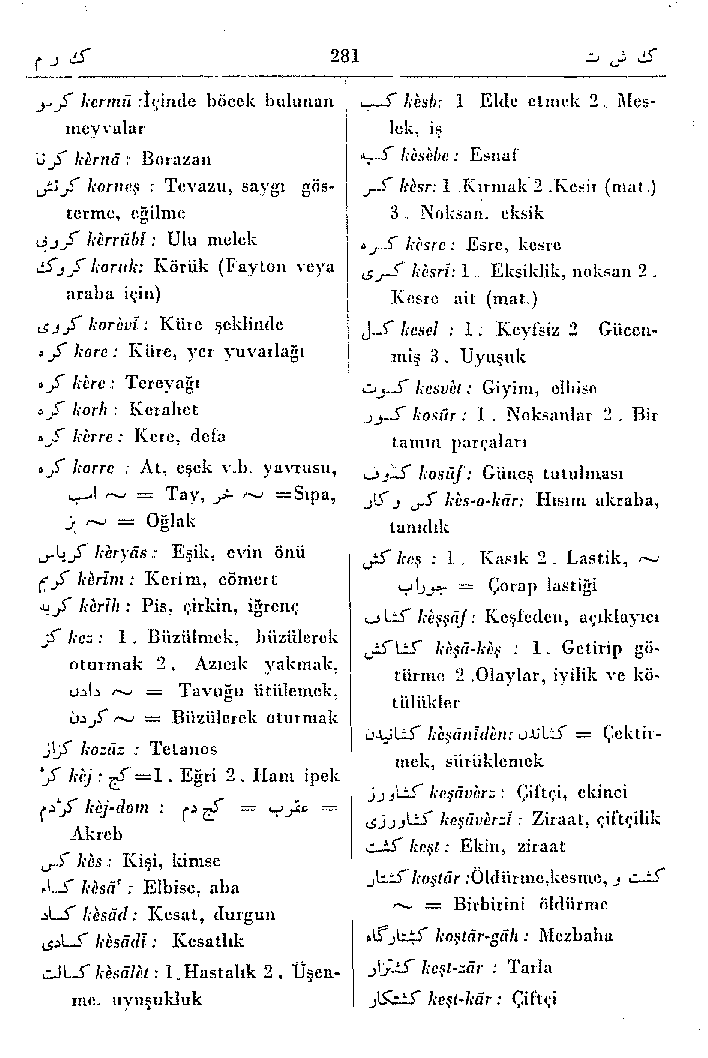 ك ر م 281 ك ش ت
كرمو kermū :İçinde böcek bulunan
meyvalar
كرنا kèrnā : Borazan
كرنش korneş : Tevazu, saygı gös-
terme, eğilme
كروبى kèrrūbī : Ulu melek
كروك koruk: Körük (Fayton veya
araba için)
كروى korèvī : Küre şeklinde
كره kore : Küre, yer yuvarlağı
كره kère : Tereyağı
كره korh : Kerahet
كره kèrre : Kere, defa
كره korre : At, eşek v.b. yavrusu,
اسب ~ = Tay, خر ~ =Sıpa,
بز ~ = Oğlak
كرياس kèryās : Eşik, evin önü
كريم kèrīm : Kerim, cömert
كريه kèrīh : Pis, çirkin, iğrenç
كز kez : 1. Büzülmek, büzülerek
oturmak 2. Azıcık yakmak,
دادن ~ = Tavuğu ütülemek,
كردن ~ = Büzülerek oturmak
كزاز kozāz : Tetanos
كژ kèj : كج =1. Eğri 2. Ham ipek
كژدم kèj-dom : كج دم = عقرب =
Akreb
كس kès : Kişi, kimse
كساء kèsā' : Elbise, aba
كساد kèsād: Kesat, durgun
كسادى kèsādī : Kesatlık
كسالت kèsālèt : 1.Hastalık 2. Üşen-
me, uyuşukluk
كسب kèsb: 1 Elde etmek 2. Mes-
lek, iş
كسبه kèsèbe : Esnaf
كسر kèsr: 1 .Kırmak 2 .Kesir (mat.)
3 . Noksan, eksik
كسره kèsre : Esre, kesre
كسرى kèsrī: 1 . Eksiklik, noksan 2 .
Kesre ait (mat.)
كسل kesel : 1. Keyfsiz 2 Gücen-
miş 3 . Uyuşuk
كسوت kesvèt : Giyim, elbise
كسور kosūr : 1 . Noksanlar 2 . Bir
tamın parçaları
كسوف kosūf: Güneş tutulması
كس و كار kès-o-kār: Hısım akraba,
tanıdık
كش keş : 1 . Kasık 2 . Lastik, ~
جوراب = Çorap lastiği
كشاف kèşşāf : Keşfeden, açıklayıcı
كشاكش kèşā-kèş : 1. Getirip gö-
türme 2 .Olaylar, iyilik ve kö-
tülükler
كشانيدن kèşānīdèn: كشاندن = Çektir-
mek, sürüklemek
كشاورز keşāvèrz : Çiftçi, ekinci
كشاورزى keşāvèrzī : Ziraat, çiftçilik
كشت keşt : Ekin, ziraat
كشتار koştār :Öldürme,kesme, كشت و
~ = Birbirini öldürme
كشتارگاه koştār-gāh : Mezbaha
كشتزار keşt-zār : Tarla
كشتكار keşt-kār : Çiftçi